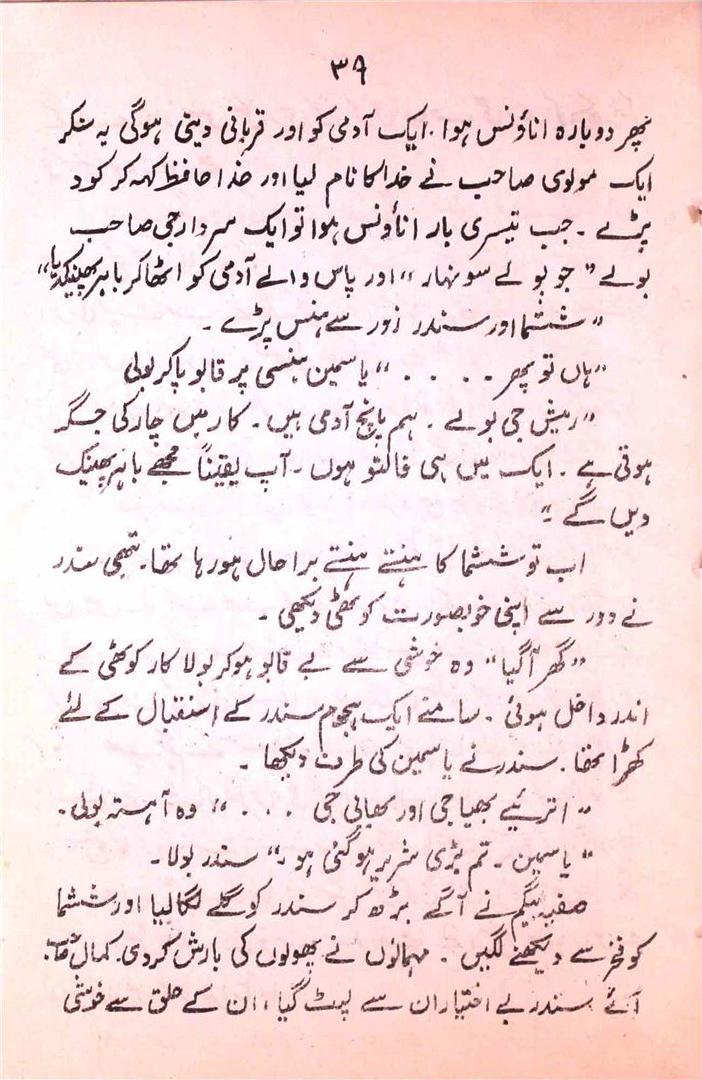 ۳۹
پھر دوبارہ اناؤنس ہوا. ایک آدمی کو اور قربانی دینی ہوگی یہ سنکر
ایک مولوی صاحب نے خدا کا نام لیا اور خدا حافظ کہہ کر کود
پڑے ۔ جب تیسری بار اناؤنس ہوا تو ایک سردار جی صاحب
بولے " جو بولے سو نہار " اور پاس والے آدمی کو اٹھا کر باہر پھینکدیا"
" ششما اور سندر زور سے ہنس پڑے ۔
"ہاں تو پھر . . . . " یاسمین ہنسی پر قابو پاکر بولی
" رمیش جی بولے ۔ ہم پانچ آدمی ہیں۔ کار میں چار کی جگہ
ہوتی ہے ۔ ایک میں ہی فالتو ہوں ۔ آپ یقیناً مجھے باہر پھینک
دیں گے ۔"
اب تو ششما کا ہنستے ہنستے برا حال ہو رہا تھا۔ تبھی سندر
نے دور سے اپنی خوبصورت کوٹھی دیکھی ۔
"گھر آگیا" وہ خوشی سے بے قابو ہوکر بولا کار کوٹھی کے
اندر داخل ہوئی ۔ سامنے ایک ہجوم سندر کے استقبال کے لئے
کھڑا تھا. سندر نے یاسمین کی طرف دیکھا ۔
" اترئیے بھیا جی اور بھابی جی . . . " وہ آہستہ بولی۔
" یاسمین ۔ تم بڑی شریر ہوگئی ہو ۔" سندر بولا۔
صفیہ بیگم نے آگے بڑھ کر سندر کو گلے لگالیا اور ششما
کو فخر سے دیکھنے لگیں ۔ مہمانوں نے پھولوں کی بارش کردی. کمال صاحب
آئے سندر بے اختیار ان سے لپٹ گیا ، ان کے حلق سے خوشی